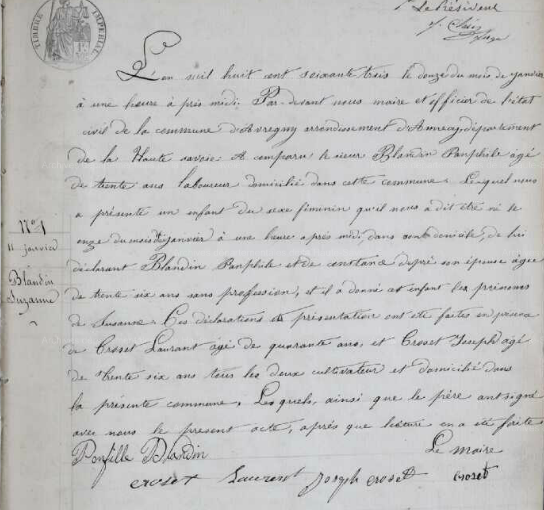 TIMBRE IMPERIAL
Le Président
Juge
L'an mil huit cent soixante trois le douze du mois de janvier
à une heure à près midi. Par-devant nous maire et officier de l'état
civil de la commune d'Avregny arrondissement d'Annecy, département
de la Haute savoie. A comparu le sieur Blandin Panphile âgé
de trente ans laboureur domicilié dans cette commune. Lequel nous
a présenté un enfant du sexe féminin qu'il nous à dit être né le
onze du mois de janvier à une heure après midi, dans son domicile, de lui
déclarant Blandin Panphile et de constance dupré son épouse âgée
de trente six ans sans profession, et il a donné cet enfant les prénoms
de Susanne. Ces déclarations et présentation ont été faites en présence
de Croset Laurant âgé de quarante ans, et Croset Joseph âgé
de trente six ans tous les deux cultivateur et domicilié dans
la présente commune. Lesquels, ainsi que le père ont signé
avec nous le present acte, après que lecture en a été faite
N° 1
11 janvier
Blandin
Suzanne
Ponfille Blandin
Le maire
croset Laurent Joseph croset croset